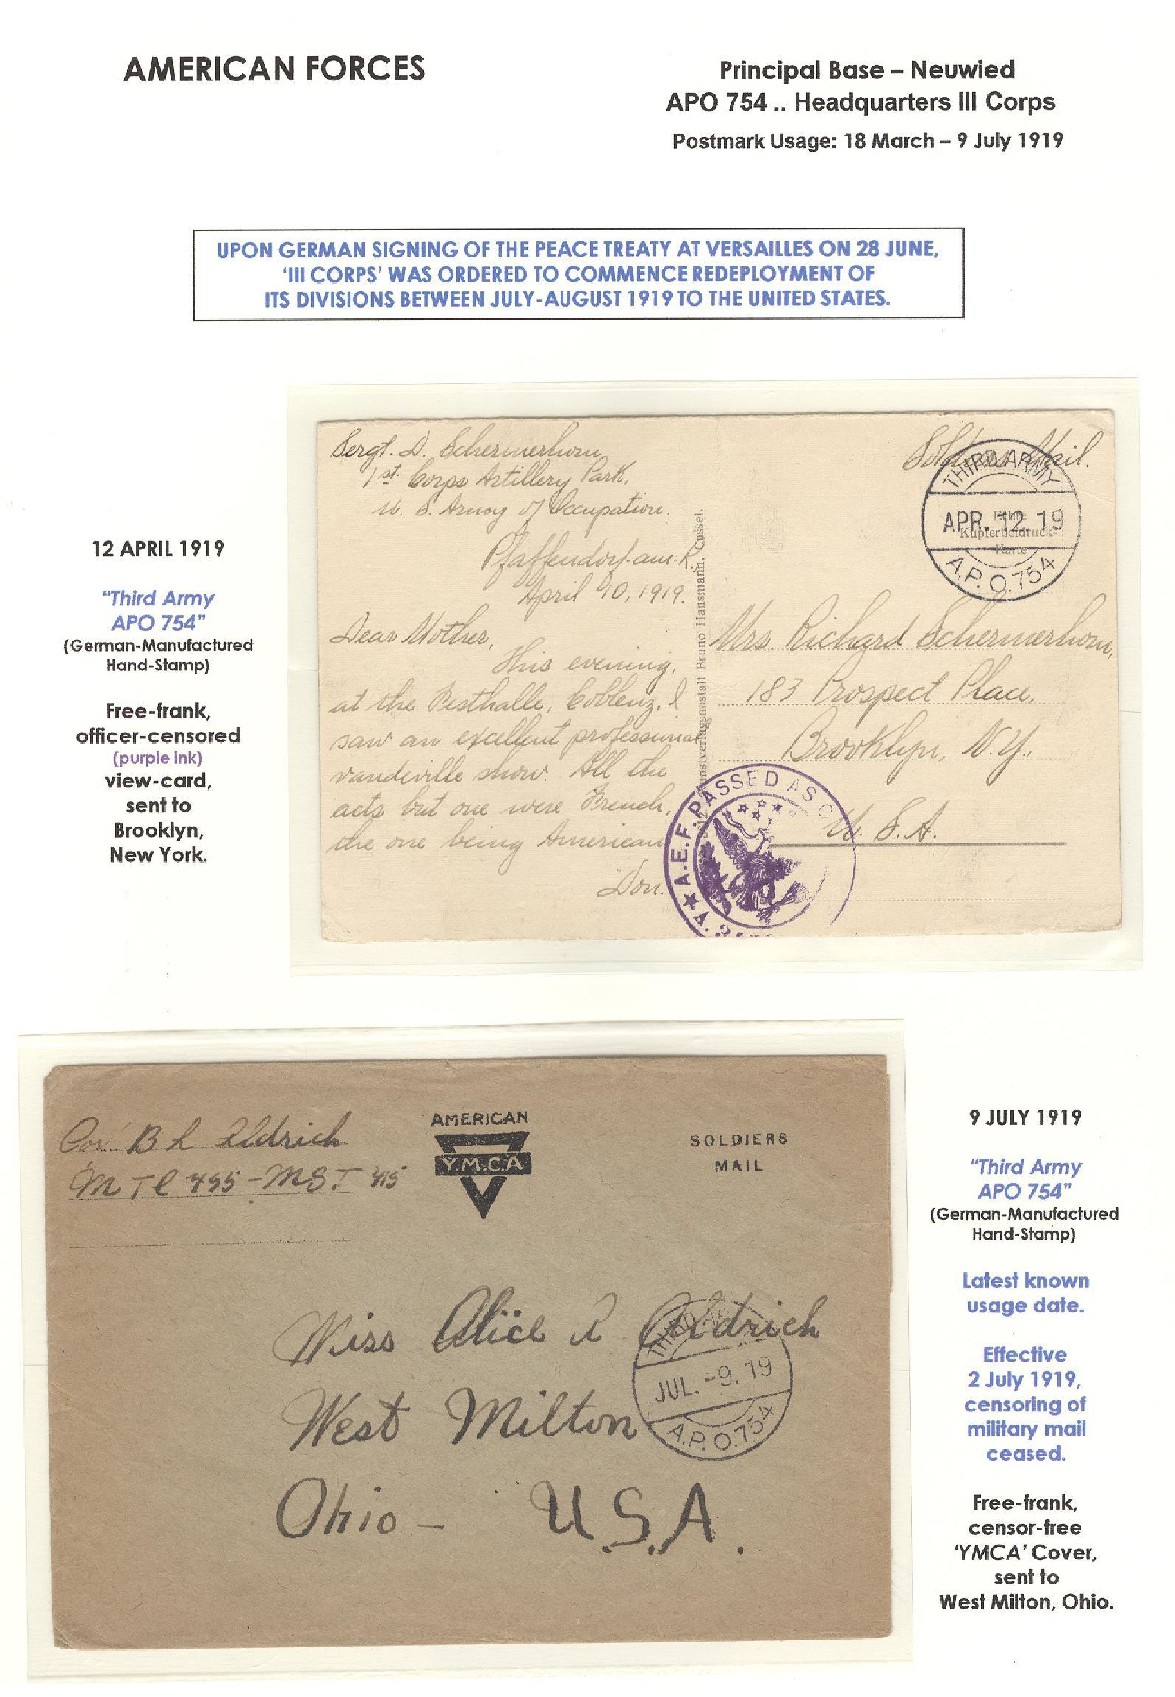 AMERICAN FORCES
Principal Base – Neuwied
APO 754 .. Headquarters III Corps
Postmark Usage: 18 March – 9 July 1919
UPON GERMAN SIGNING OF THE PEACE TREATY AT VERSAILLES ON 28 JUNE,
‘III CORPS’ WAS ORDERED TO COMMENCE REDEPLOYMENT OF
ITS DIVISIONS BETWEEN JULY-AUGUST 1919 TO THE UNITED STATES.
12 APRIL 1919
“Third Army
APO 754”
(German-Manufactured
Hand-Stamp)
Free-frank,
officer-censored
(purple ink)
view-card,
sent to
Brooklyn,
New York.
Sergt. D. Schermerhorn,
1st Corps Artillery Park,
U. S. Army of Occupation.
Pfaffendorf-am-R.
April 10, 1919.
Dear Mother,
This evening,
at the Festhalle, Coblenz, I
saw an excellent professional
vaudeville show. All the
acts but one were French,
the one being American
Don.
Bruno Hansmann, Cassel.
Soldiers Mail.
THIRD ARMY
APR. 12. 19
A.P.O. 754
Kupfertiefdruck-
Karte
Mrs. Richard Schermerhorn,
183 Prospect Place,
Brooklyn, N.Y.,
U. S. A.
A.E.F. PASSED AS
Cor. B L Aldrich
MTC 495 - MST 415
AMERICAN
Y.M.C.A
SOLDIERS
MAIL
Miss Alice R Aldrich
West Milton
Ohio – U.S.A.
THIRD
JUL. -9. 19
A.P.O. 754
9 JULY 1919
“Third Army
APO 754”
(German-Manufactured
Hand-Stamp)
Latest known
usage date.
Effective
2 July 1919,
censoring of
military mail
ceased.
Free-frank,
censor-free
‘YMCA’ Cover,
sent to
West Milton, Ohio.